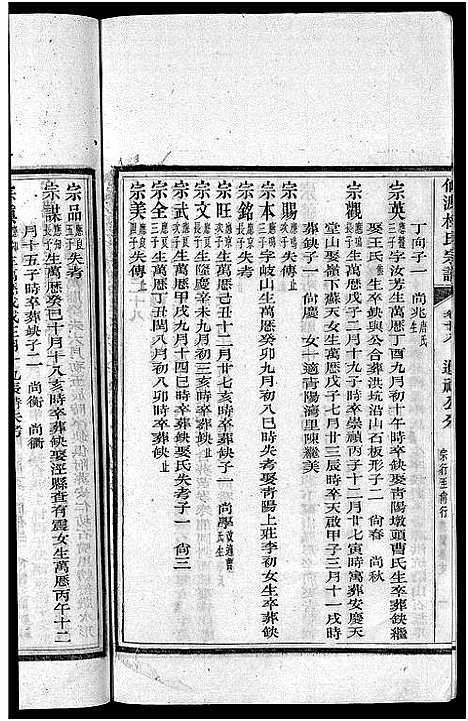 仙源林氏宗譜 卷十八 宗行至尙行
丁向子一 尙兆唐氏
宗英 三子 字汝芳生萬曆丁酉九月初十午時卒葬缺娶靑陽墩頭曹氏生卒葬缺繼
娶王氏 生卒缺與公合葬洪坑沿山石板形子二 尙春 尙秋
宗觀 長子 生萬曆己酉九月二十九子時卒崇禎丙子十二月廿七寅時寓葬安慶天
堂山娶嶺下蘇天女生萬曆 子七月廿三辰時卒天啟甲子三月十一戌時
葬缺子一 尙慶 女一適靑陽灣里陳繼美
宗賜 應鳴次子 失傳止
宗本 應鳴三子 字岐山生萬曆癸卯九月初八巳時失考娶靑陽上莊李初女生卒葬缺
宗銘 應京長子 失考止
宗旺 應京次子 生萬曆己丑十二月廿七亥時卒葬缺子一 尙學
宗文 長子 生隆慶辛未初三亥時卒葬缺止
宗武 次子 生萬曆甲戌九月十四時卒葬缺娶氏失考子一 尙三
宗全 三子 生萬曆丁丑閏八月初八卯時卒葬缺止
宗美 四子 失傳止
宗品 應良五子 失考
宗謀 長子 生萬曆癸巳十月十八亥時卒葬缺娶涇縣查有震女生萬曆丙午十二
月十五子時卒葬缺子二 尙衡 尙衢